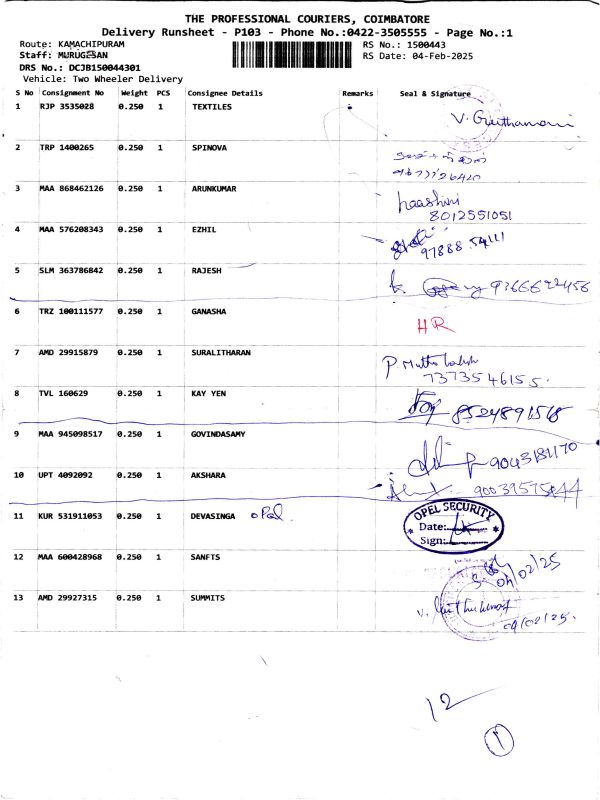 THE PROFESSIONAL COURIERS, COIMBATORE
Delivery Runsheet - P103 - Phone No.:0422-3505555 - Page No.:1
Route: KAMACHIPURAM
RS No.: 1500443
Staff: MURUGESAN
RS Date: 04-Feb-2025
DRS No.: DCJB150044301
Vehicle: Two Wheeler Delivery
S No Consignment No Weight PCS Consignee Details Remarks Seal & Signature
1 RJP 3535028 0.250 1 TEXTILES
2 TRP 1400265 0.250 1 SPINOVA
3 MAA 868462126 0.250 1 ARUNKUMAR haashini
8012551051
4 MAA 576208343 0.250 1 EZHIL
97888 54111
5 SLM 363786842 0.250 1 RAJESH 9366622456
6 TRZ 100111577 0.250 1 GANASHA HR
7 AMD 29915879 0.250 1 SURALITHARAN
7373546155.
8 TVL 160629 0.250 1 KAY YEN 8524891568
9 MAA 945098517 0.250 1 GOVINDASAMY 9043181170
10 UPT 4092092 0.250 1 AKSHARA
11 KUR 531911053 0.250 1 DEVASINGA opel OPEL SECURITY
Date:
Sign:
12 MAA 600428968 0.250 1 SANFTS
04/02/25
13 AMD 29927315 0.250 1 SUMMITS
04/02/25.
12
1